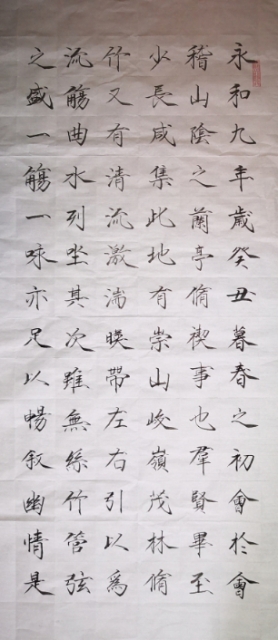 永和九年歲癸丑暮春之初會於會
稽山陰之蘭亭脩禊事也羣賢畢至
少長咸集此地有崇山峻嶺茂林脩
竹又有清流激湍暎帶左右引以為
流觴曲水列坐其次雖無絲竹管弦
之盛一觴一咏亦足以暢敘幽情是